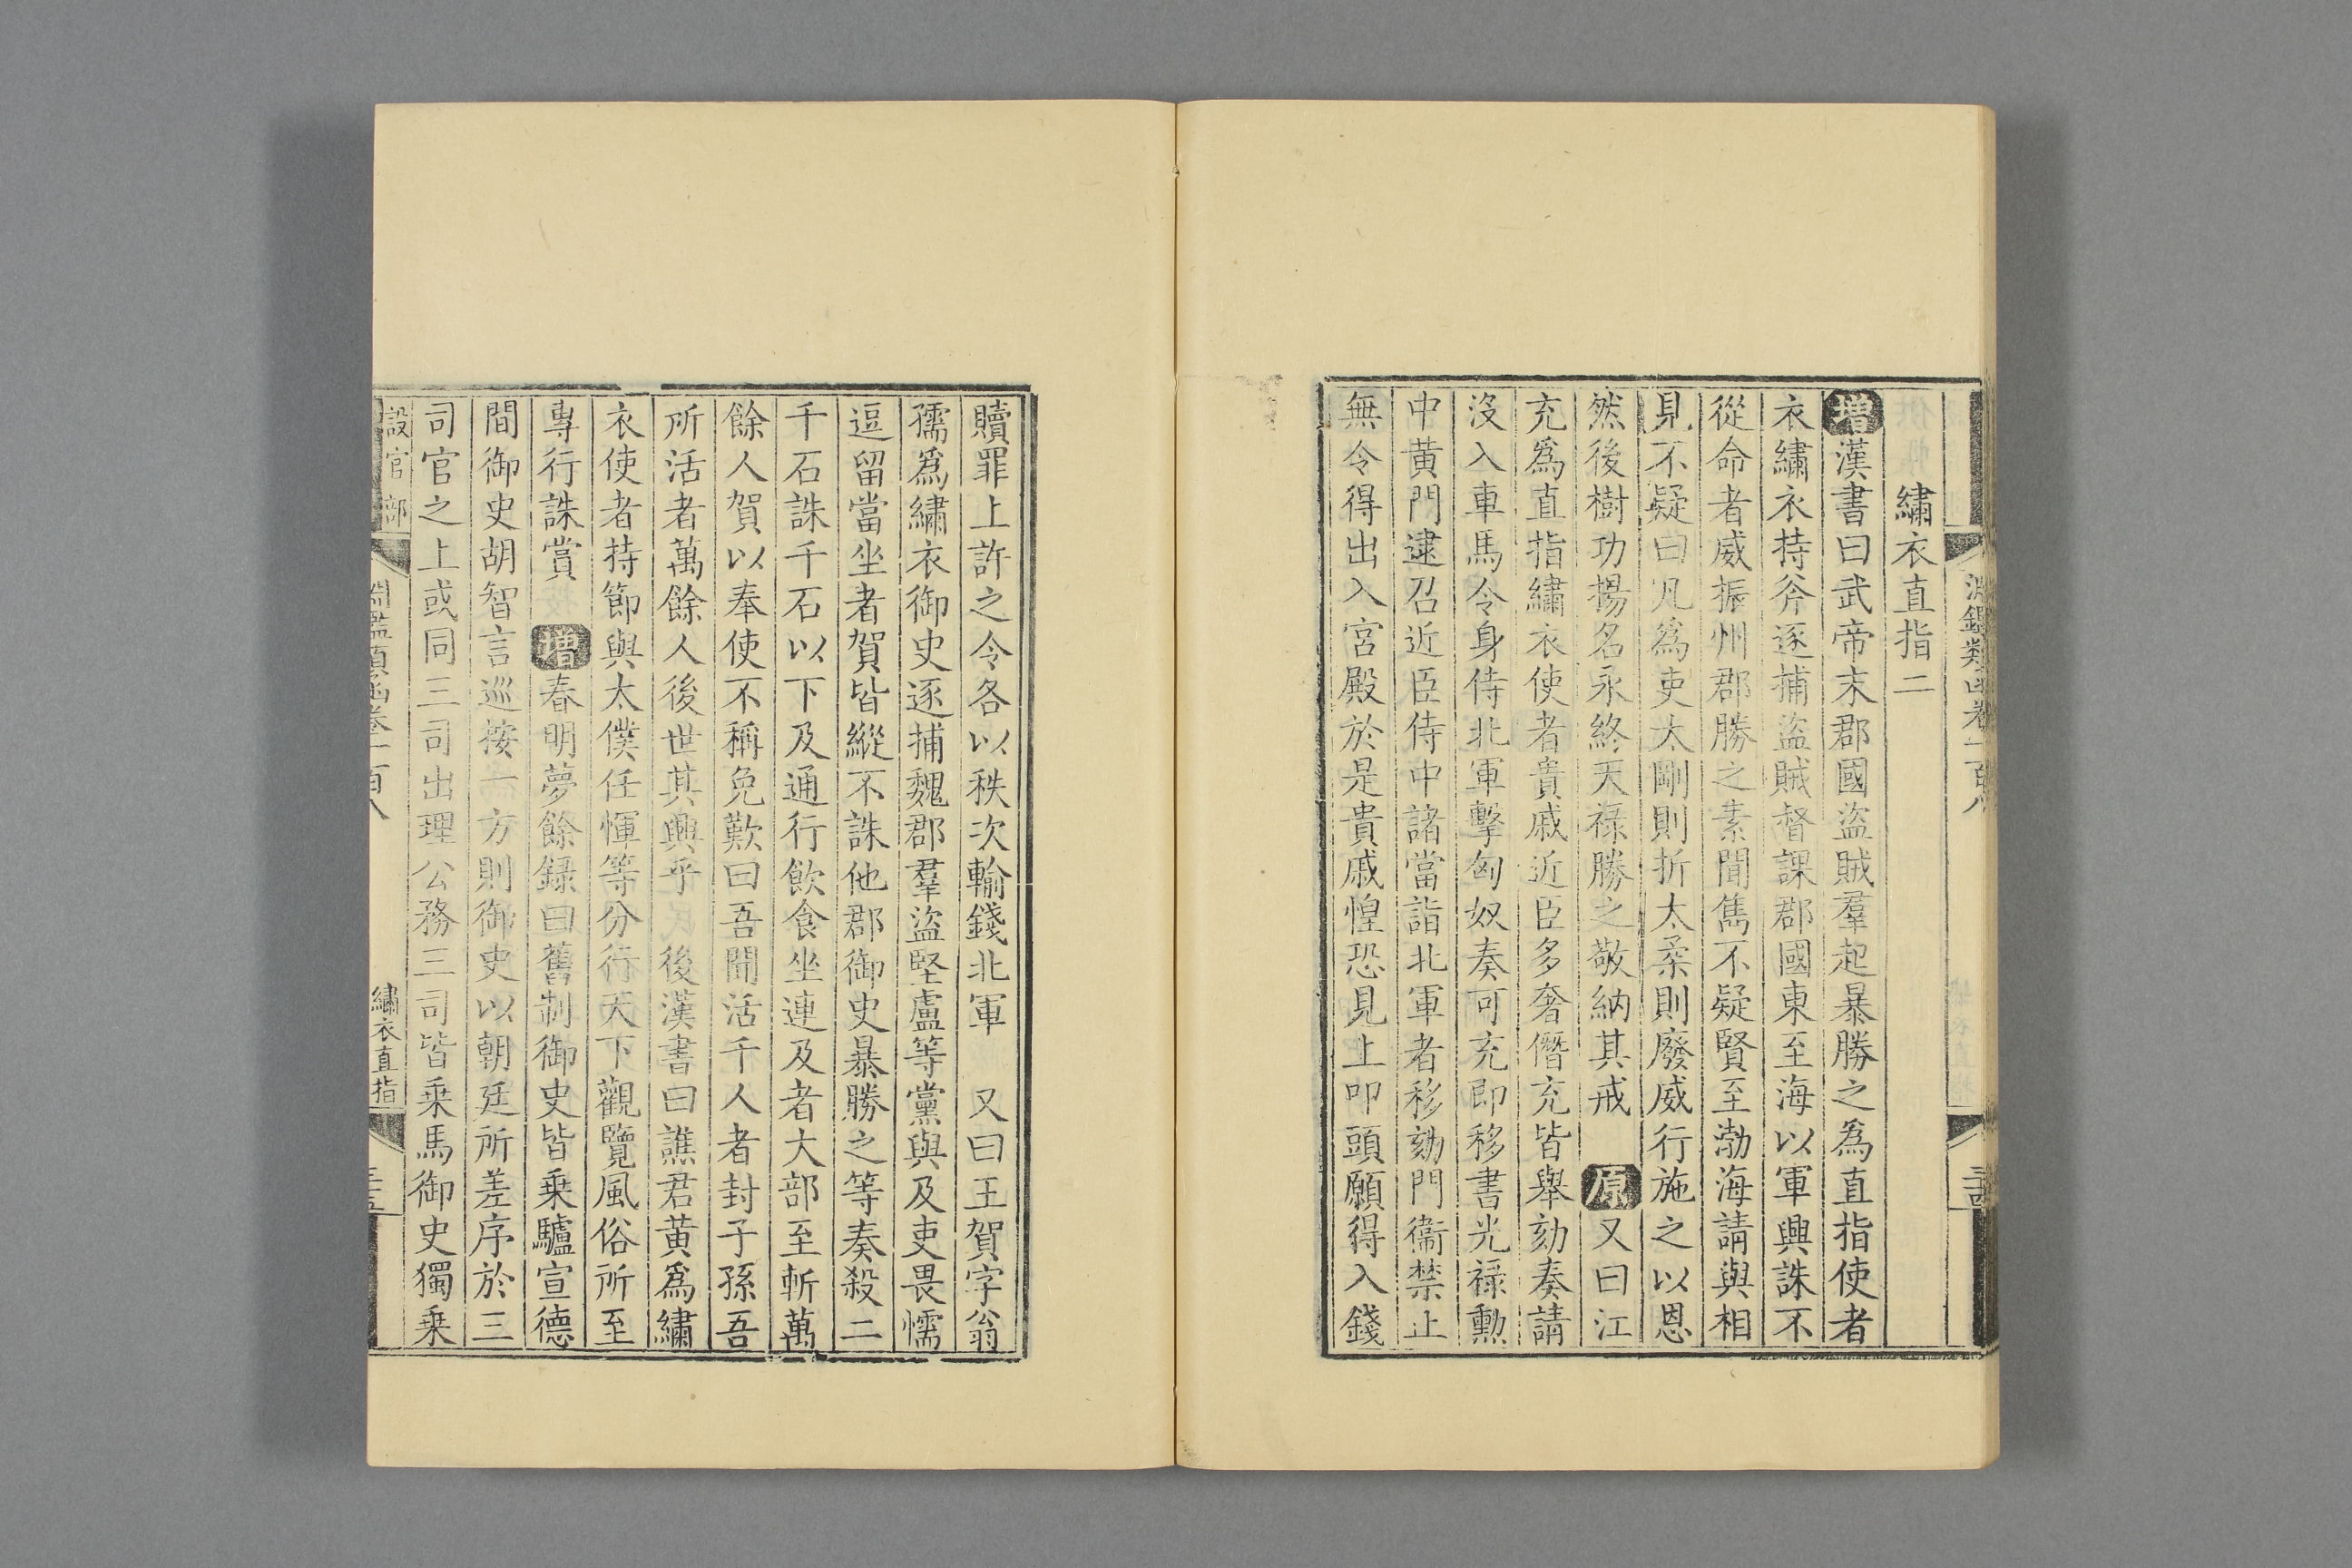 繡衣直指二
增漢書曰武帝末郡國盜賊羣起暴勝之爲直指使者
衣繡衣持斧逐捕盜賊督課郡國東至海以軍興誅不
從命者威振州郡勝之素聞雋不疑賢至渤海請與相
見不疑曰凡爲吏太剛則折太柔則廢威行施之以恩
然後樹功揚名永終天祿勝之敬納其戒 原又曰江
充爲直指繡衣使者貴戚近臣多奢僭充皆舉劾奏請
沒入車馬令身侍北軍擊匈奴奏可充即移書光祿勳
中黃門逮召近臣侍中諸當詣北軍者移劾門衞禁止
無令得出入宮殿於是貴戚惶恐見上叩頭願得入錢
贖罪上許之令各以秩次輸錢北軍 又曰王賀字翁
孺爲繡衣御史逐捕魏郡羣盜堅盧等黨與及吏畏懦
逗留當坐者賀皆縱不誅他郡御史暴勝之等奏殺二
千石誅千石以下及通行飲食坐連及者大部至斬萬
餘人賀以奉使不稱免歎曰吾聞活千人者封子孫吾
所活者萬餘人後世其興乎 後漢書曰譙君黃爲繡
衣使者持節與太僕任惲等分行天下觀覽風俗所至
專行誅賞 增春明夢餘錄曰舊制御史皆乘驢宣德
間御史胡智言巡按一方則御史以朝廷所差序於三
司官之上或同三司出理公務三司皆乘馬御史獨乘
設官部
淵鑑類函卷一百八
繡衣直指